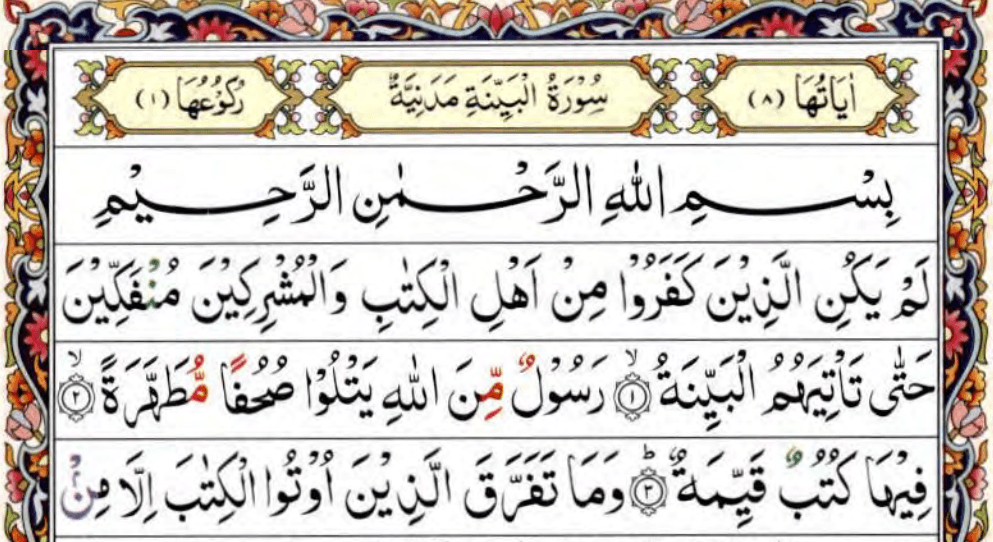 اٰيَاتُهَا (٨) سُوْرَةُ الْبَيِّنَةِ مَدَنِيَّةٌ رُكُوْعُهَا (١)
بِسْمِ اللّٰهِ الرَّحْمٰنِ الرَّحِيْمِ
لَمْ يَكُنِ الَّذِيْنَ كَفَرُوْا مِنْ اَهْلِ الْكِتٰبِ وَالْمُشْرِكِيْنَ مُنْفَكِّيْنَ
حَتّٰى تَاْتِيَهُمُ الْبَيِّنَةُ ۙ﴿١﴾ رَسُوْلٌ مِّنَ اللّٰهِ يَتْلُوْا صُحُفًا مُّطَهَّرَةً ۙ﴿٢﴾
فِيْهَا كُتُبٌ قَيِّمَةٌ ؕ﴿٣﴾ وَمَا تَفَرَّقَ الَّذِيْنَ اُوْتُوا الْكِتٰبَ اِلَّا مِنْۢ